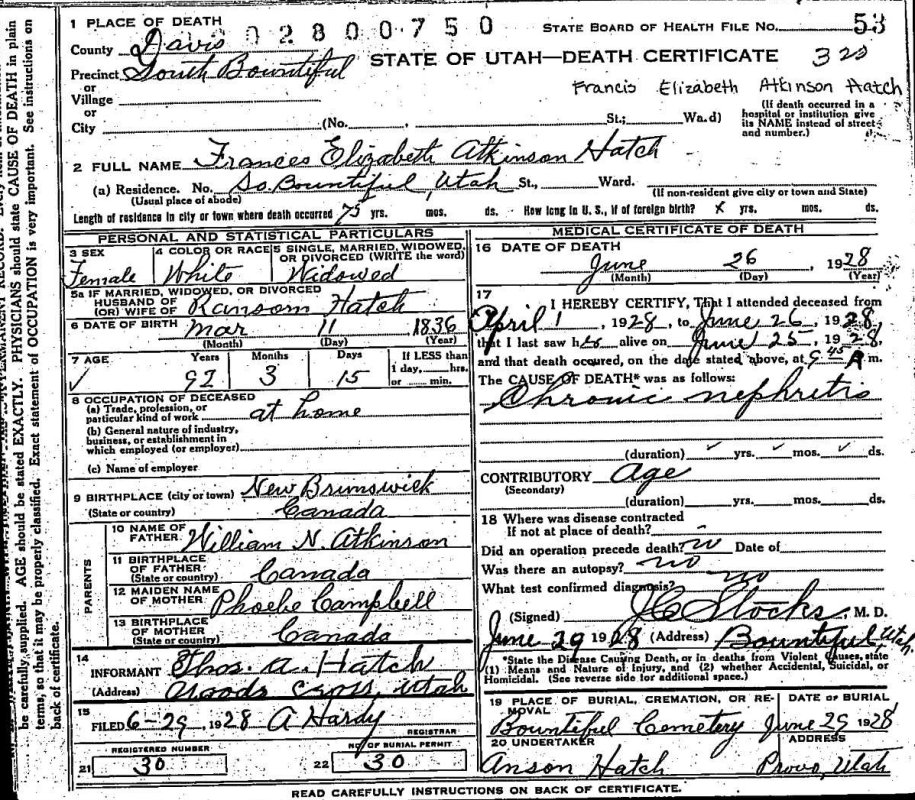 1 PLACE OF DEATH
02800750
STATE BOARD OF HEALTH FILE No. 53
County Davis
STATE OF UTAH—DEATH CERTIFICATE 320
Precinct South Bountiful
or
Village
Francis Elizabeth Atkinson Hatch
or
City (No. , St.; Wa.d)
(If death occurred in a
hospital or institution give
its NAME instead of street
and number.)
2 FULL NAME Frances Elizabeth Atkinson Hatch
(a) Residence. No. So. Bountiful, Utah St., Ward.
(Usual place of abode) (If non-resident give city or town and State)
Length of residence in city or town where death occurred 75 yrs. mos. ds. How long in U. S., if of foreign birth? x yrs. mos. ds.
PERSONAL AND STATISTICAL PARTICULARS
3 SEX 4 COLOR OR RACE 5 SINGLE, MARRIED, WIDOWED,
OR DIVORCED (WRITE the word)
Female White Widowed
5a IF MARRIED, WIDOWED, OR DIVORCED
HUSBAND OF
(OR) WIFE OF Ransom Hatch
6 DATE OF BIRTH Mar 11 1836
(Month) (Day) (Year)
7 AGE Years Months Days If LESS than
1 day, hrs.
or min.
✓ 92 3 15
8 OCCUPATION OF DECEASED
(a) Trade, profession, or
particular kind of work at home
(b) General nature of industry,
business, or establishment in
which employed (or employer)
(c) Name of employer
9 BIRTHPLACE (city or town) New Brunswick
(State or country) Canada
PARENTS
10 NAME OF
FATHER William N. Atkinson
11 BIRTHPLACE
OF FATHER
(State or country) Canada
12 MAIDEN NAME
OF MOTHER Phoebe Campbell
13 BIRTHPLACE
OF MOTHER
(State or country) Canada
14
INFORMANT Thos. A. Hatch
(Address) Woods Cross, Utah
15
FILED 6-29, 1928 A Hardy
REGISTRAR
REGISTERED NUMBER NO. OF BURIAL PERMIT
21 30 22 30
MEDICAL CERTIFICATE OF DEATH
16 DATE OF DEATH
June 26, 1928
(Month) (Day) (Year)
17
I HEREBY CERTIFY, That I attended deceased from
April 1, 1928, to June 26, 1928,
that I last saw h alive on June 25, 1928,
and that death occured, on the date stated above, at 9 45 A m.
The CAUSE OF DEATH* was as follows:
Chronic nephretis
(duration) ✓ yrs. ✓ mos. ✓ ds.
CONTRIBUTORY Age
(Secondary)
(duration) yrs. mos. ds.
18 Where was disease contracted
If not at place of death?
Did an operation precede death? no Date of
Was there an autopsy? no
What test confirmed diagnosis? no
(Signed) J C Stocks M. D.
June 29 1928 (Address) Bountiful, Utah.
*State the Disease Causing Death, or in deaths from Violent Causes, state
(1) Means and Nature of Injury, and (2) whether Accidental, Suicidal, or
Homicidal. (See reverse side for additional space.)
19 PLACE OF BURIAL, CREMATION, OR RE- DATE OF BURIAL
MOVAL
Bountiful Cemetery June 29 1928
20 UNDERTAKER ADDRESS
Anson Hatch Provo, Utah
READ CAREFULLY INSTRUCTIONS ON BACK OF CERTIFICATE.
be carefully supplied. AGE should be stated EXACTLY. PHYSICIANS should state CAUSE OF DEATH in plain
terms, so that it may be properly classified. Exact statement of OCCUPATION is very important. See instructions on
back of certificate.